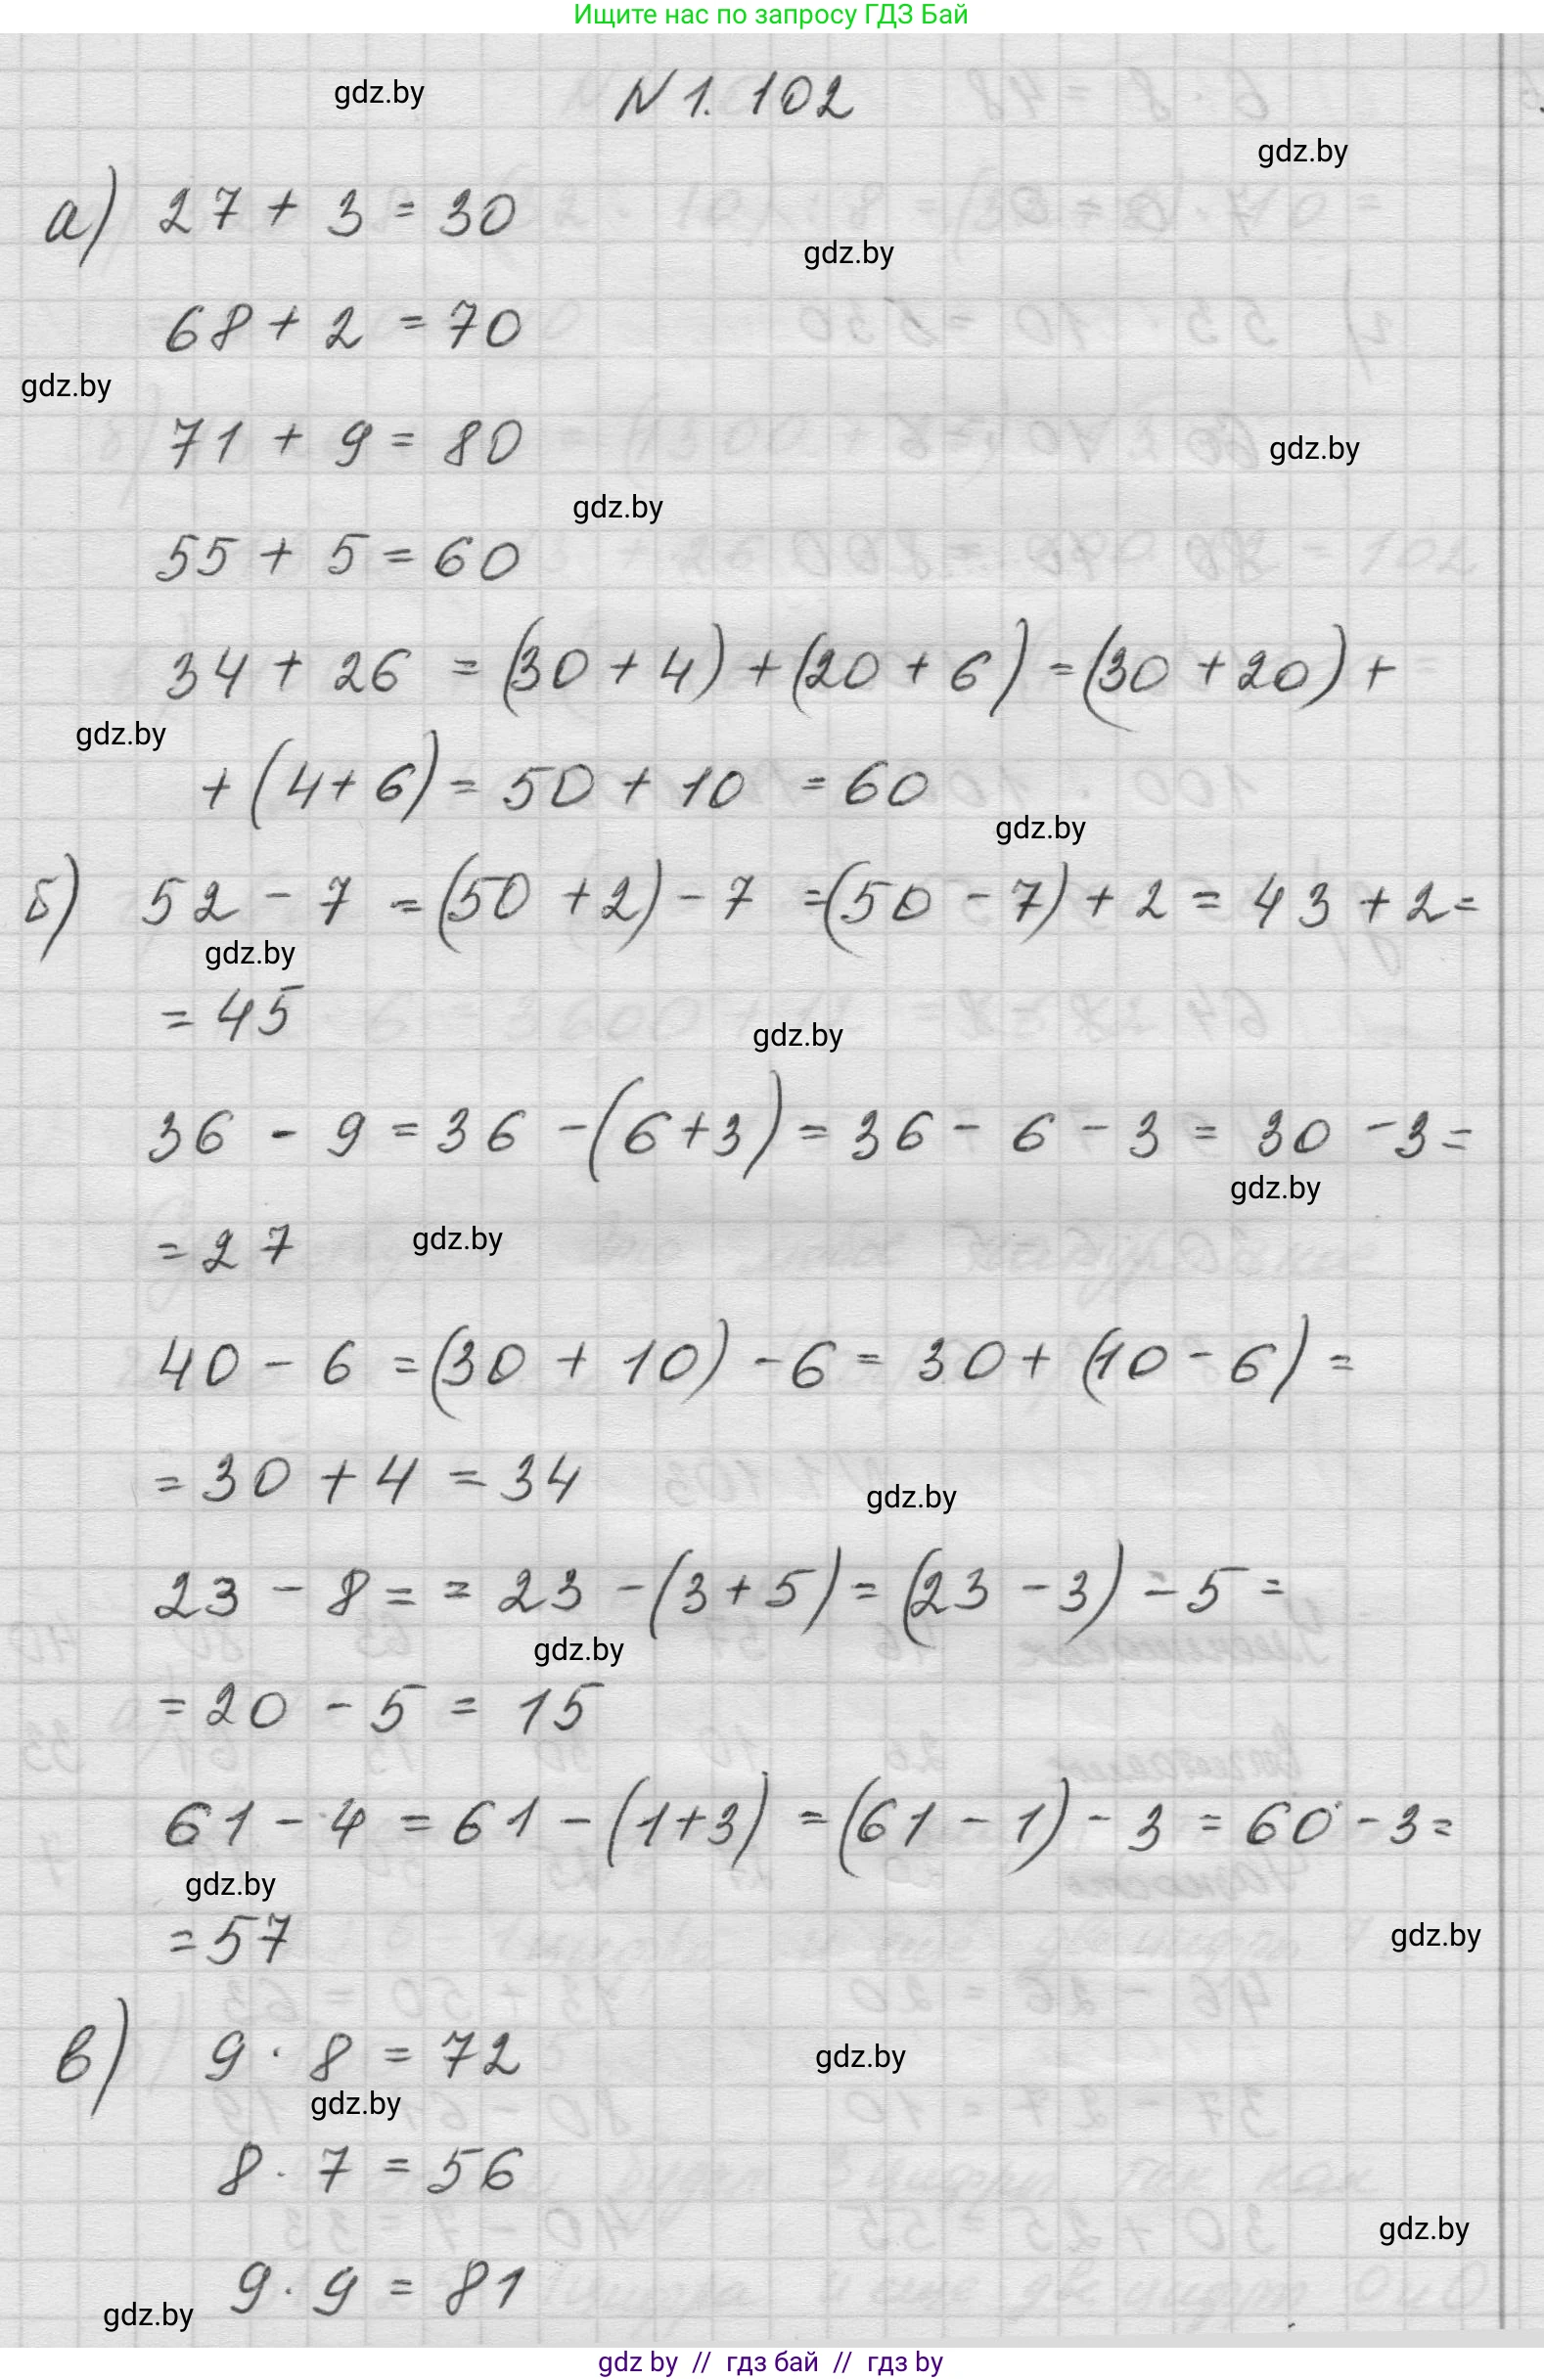 Ищите нас по запросу ГДЗ Бай
gdz.by
N 1. 102
gdz.by
а) 27 + 3 = 30
gdz.by
68 + 2 = 70
gdz.by
71 + 9 = 80
gdz.by
gdz.by
55 + 5 = 60
34 + 26 = (30 + 4) + (20 + 6) = (30 + 20) +
gdz.by
+ (4 + 6) = 50 + 10 = 60
gdz.by
б) 52 - 7 = (50 + 2) - 7 = (50 - 7) + 2 = 43 + 2 =
gdz.by
= 45
gdz.by
36 - 9 = 36 - (6 + 3) = 36 - 6 - 3 = 30 - 3 =
gdz.by
= 27
gdz.by
40 - 6 = (30 + 10) - 6 = 30 + (10 - 6) =
= 30 + 4 = 34
gdz.by
23 - 8 = = 23 - (3 + 5) = (23 - 3) - 5 =
gdz.by
= 20 - 5 = 15
61 - 4 = 61 - (1 + 3) = (61 - 1) - 3 = 60 - 3 =
gdz.by
= 57
gdz.by
в) 9 · 8 = 72
gdz.by
gdz.by
8 · 7 = 56
gdz.by
9 · 9 = 81
gdz.by
gdz by // гдз бай // гдз by